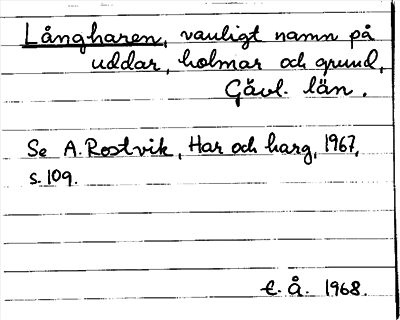 Långharen, vanligt namn på
uddar, holmar och grund,
Gävl. län.
Se A. Rostvik, Har och harg, 1967,
s. 109.
t. Å. 1968.